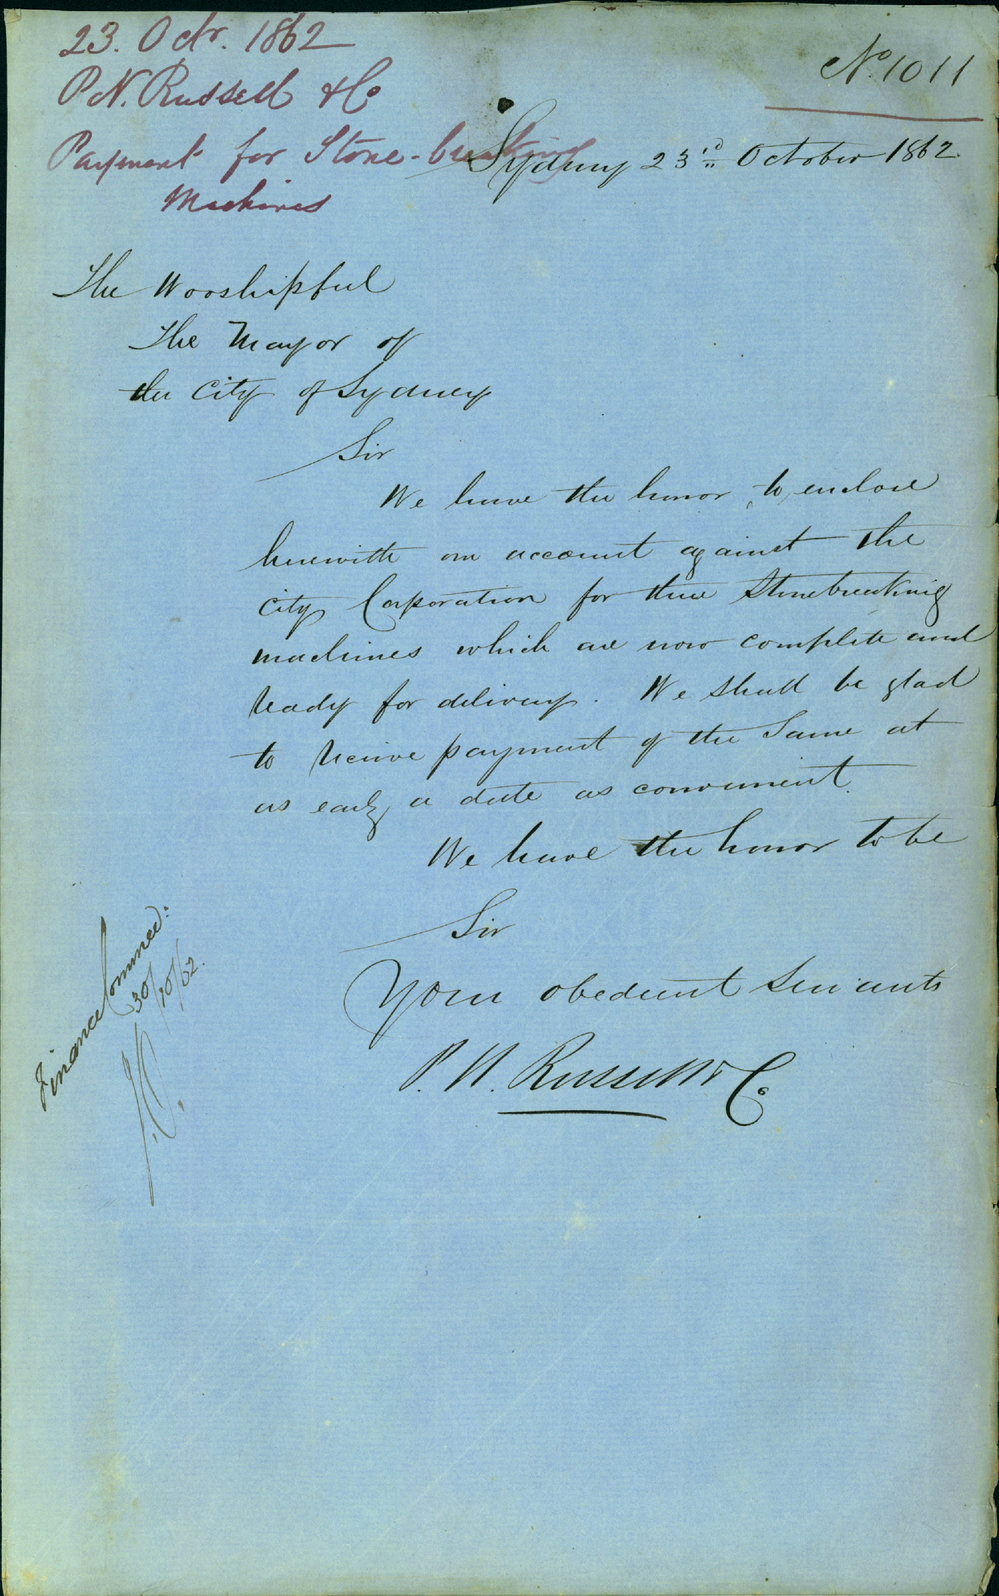 23. Octr. 1862
P N. Russell & Co
Payment for Stone-breaking
Machines
No. 1011
Sydney 23rd October 1862
The Worshipful
The Mayor of
the City of Sydney
Sir
We have the honor to enclose
herewith our account against the
City Corporation for three Stonebreaking
machines which are now complete and
ready for delivery. We shall be glad
to receive payment of the same at
as early a date as convenient.
We have the honor to be
Sir
Your obedient Servants
P. N. Russell & Co.
Finance Commee:
30/10/62.